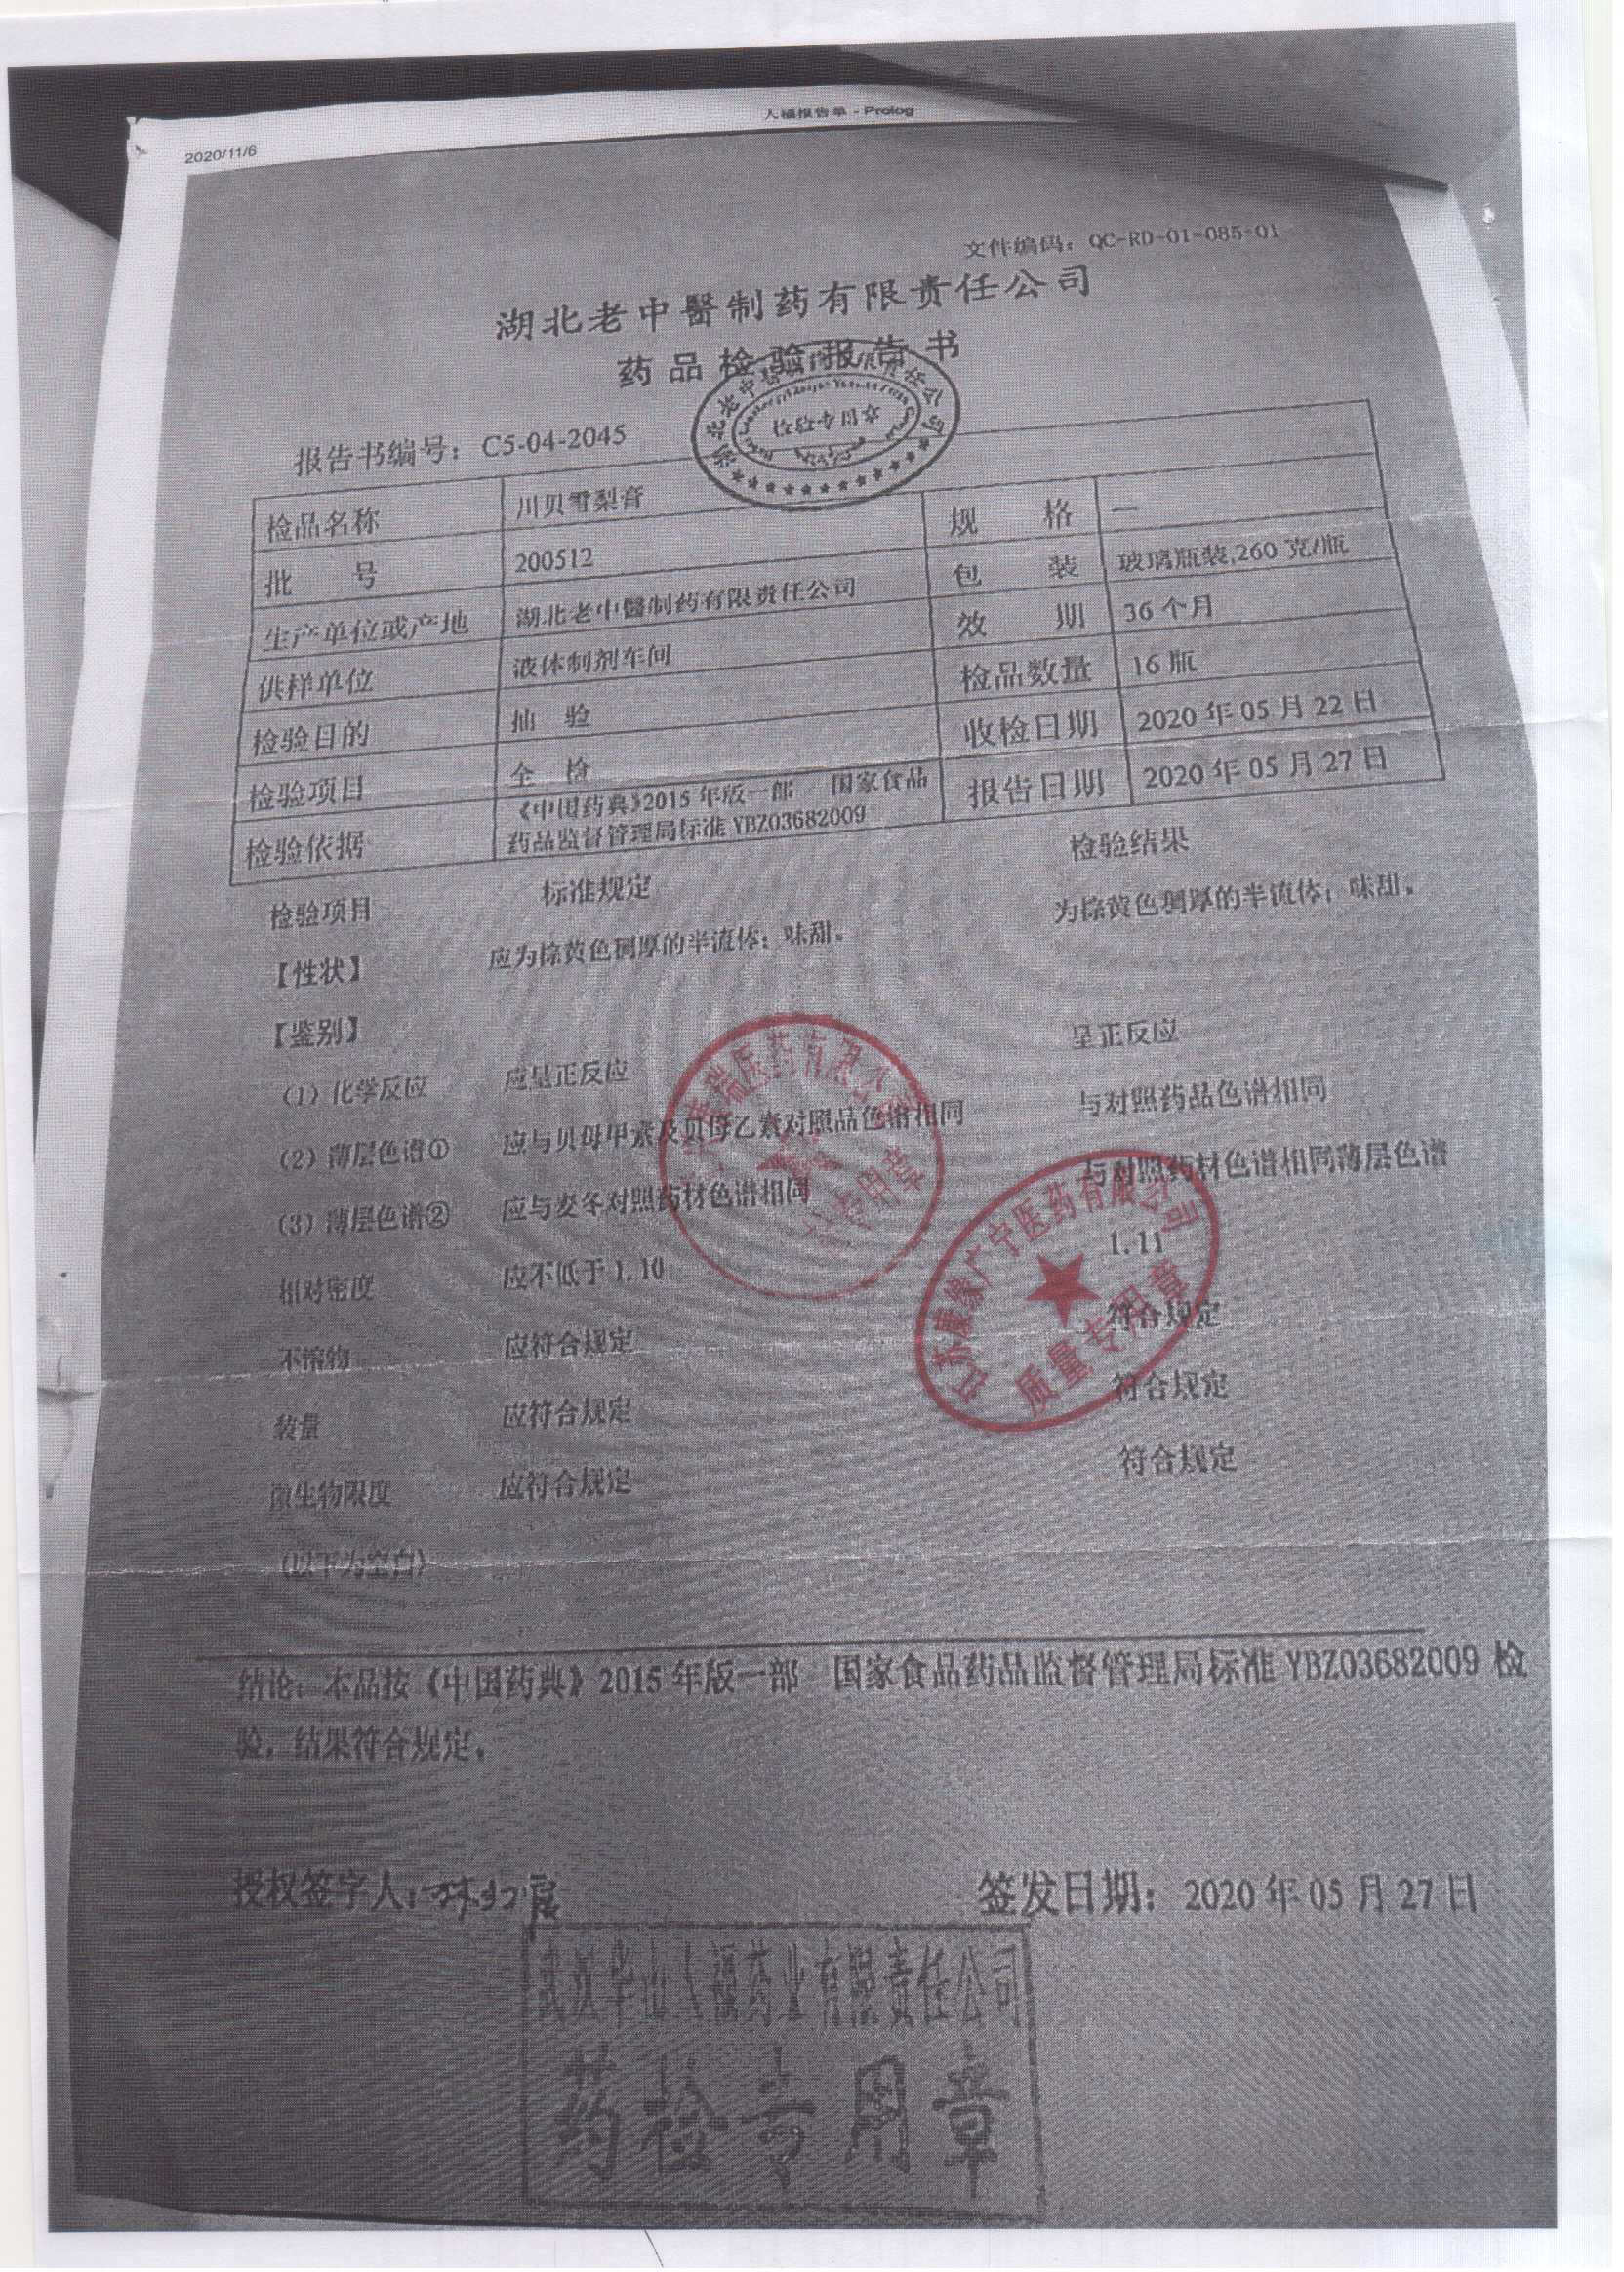 人福报告单 - Prolog
2020/11/6
文件编码：QC-RD-01-085-01
湖北老中醫制药有限责任公司
药品检验报告书
湖北老中醫制药有限责任公司
检验专用章
报告书编号：C5-04-2045
检品名称 川贝雪梨膏
批 号 200512 规 格 —
生产单位或产地 湖北老中醫制药有限责任公司 包 装 玻璃瓶装,260 克/瓶
供样单位 液体制剂车间 效 期 36 个月
检验目的 抽 验 检品数量 16 瓶
检验项目 全 检 收检日期 2020 年 05 月 22 日
检验依据 《中国药典》2015 年版一部 国家食品 报告日期 2020 年 05 月 27 日
药品监督管理局标准 YBZ03682009
检验项目 标准规定 检验结果
【性状】 应为棕黄色稠厚的半流体；味甜。 为棕黄色稠厚的半流体；味甜。
【鉴别】
(1) 化学反应 应呈正反应 呈正反应
(2) 薄层色谱① 应与贝母甲素及贝母乙素对照品色谱相同 与对照药品色谱相同
(3) 薄层色谱② 应与麦冬对照药材色谱相同 与对照药材色谱相同薄层色谱
相对密度 应不低于 1.10 1.11
不溶物 应符合规定 符合规定
装量 应符合规定 符合规定
微生物限度 应符合规定 符合规定
(以下为空白)
瑞医药有限公司
江苏康缘广宁医药有限公司
质量专用章
结论：本品按《中国药典》2015 年版一部 国家食品药品监督管理局标准 YBZ03682009 检
验，结果符合规定。
授权签字人： 签发日期：2020 年 05 月 27 日
武汉华山人福药业有限责任公司
药检专用章